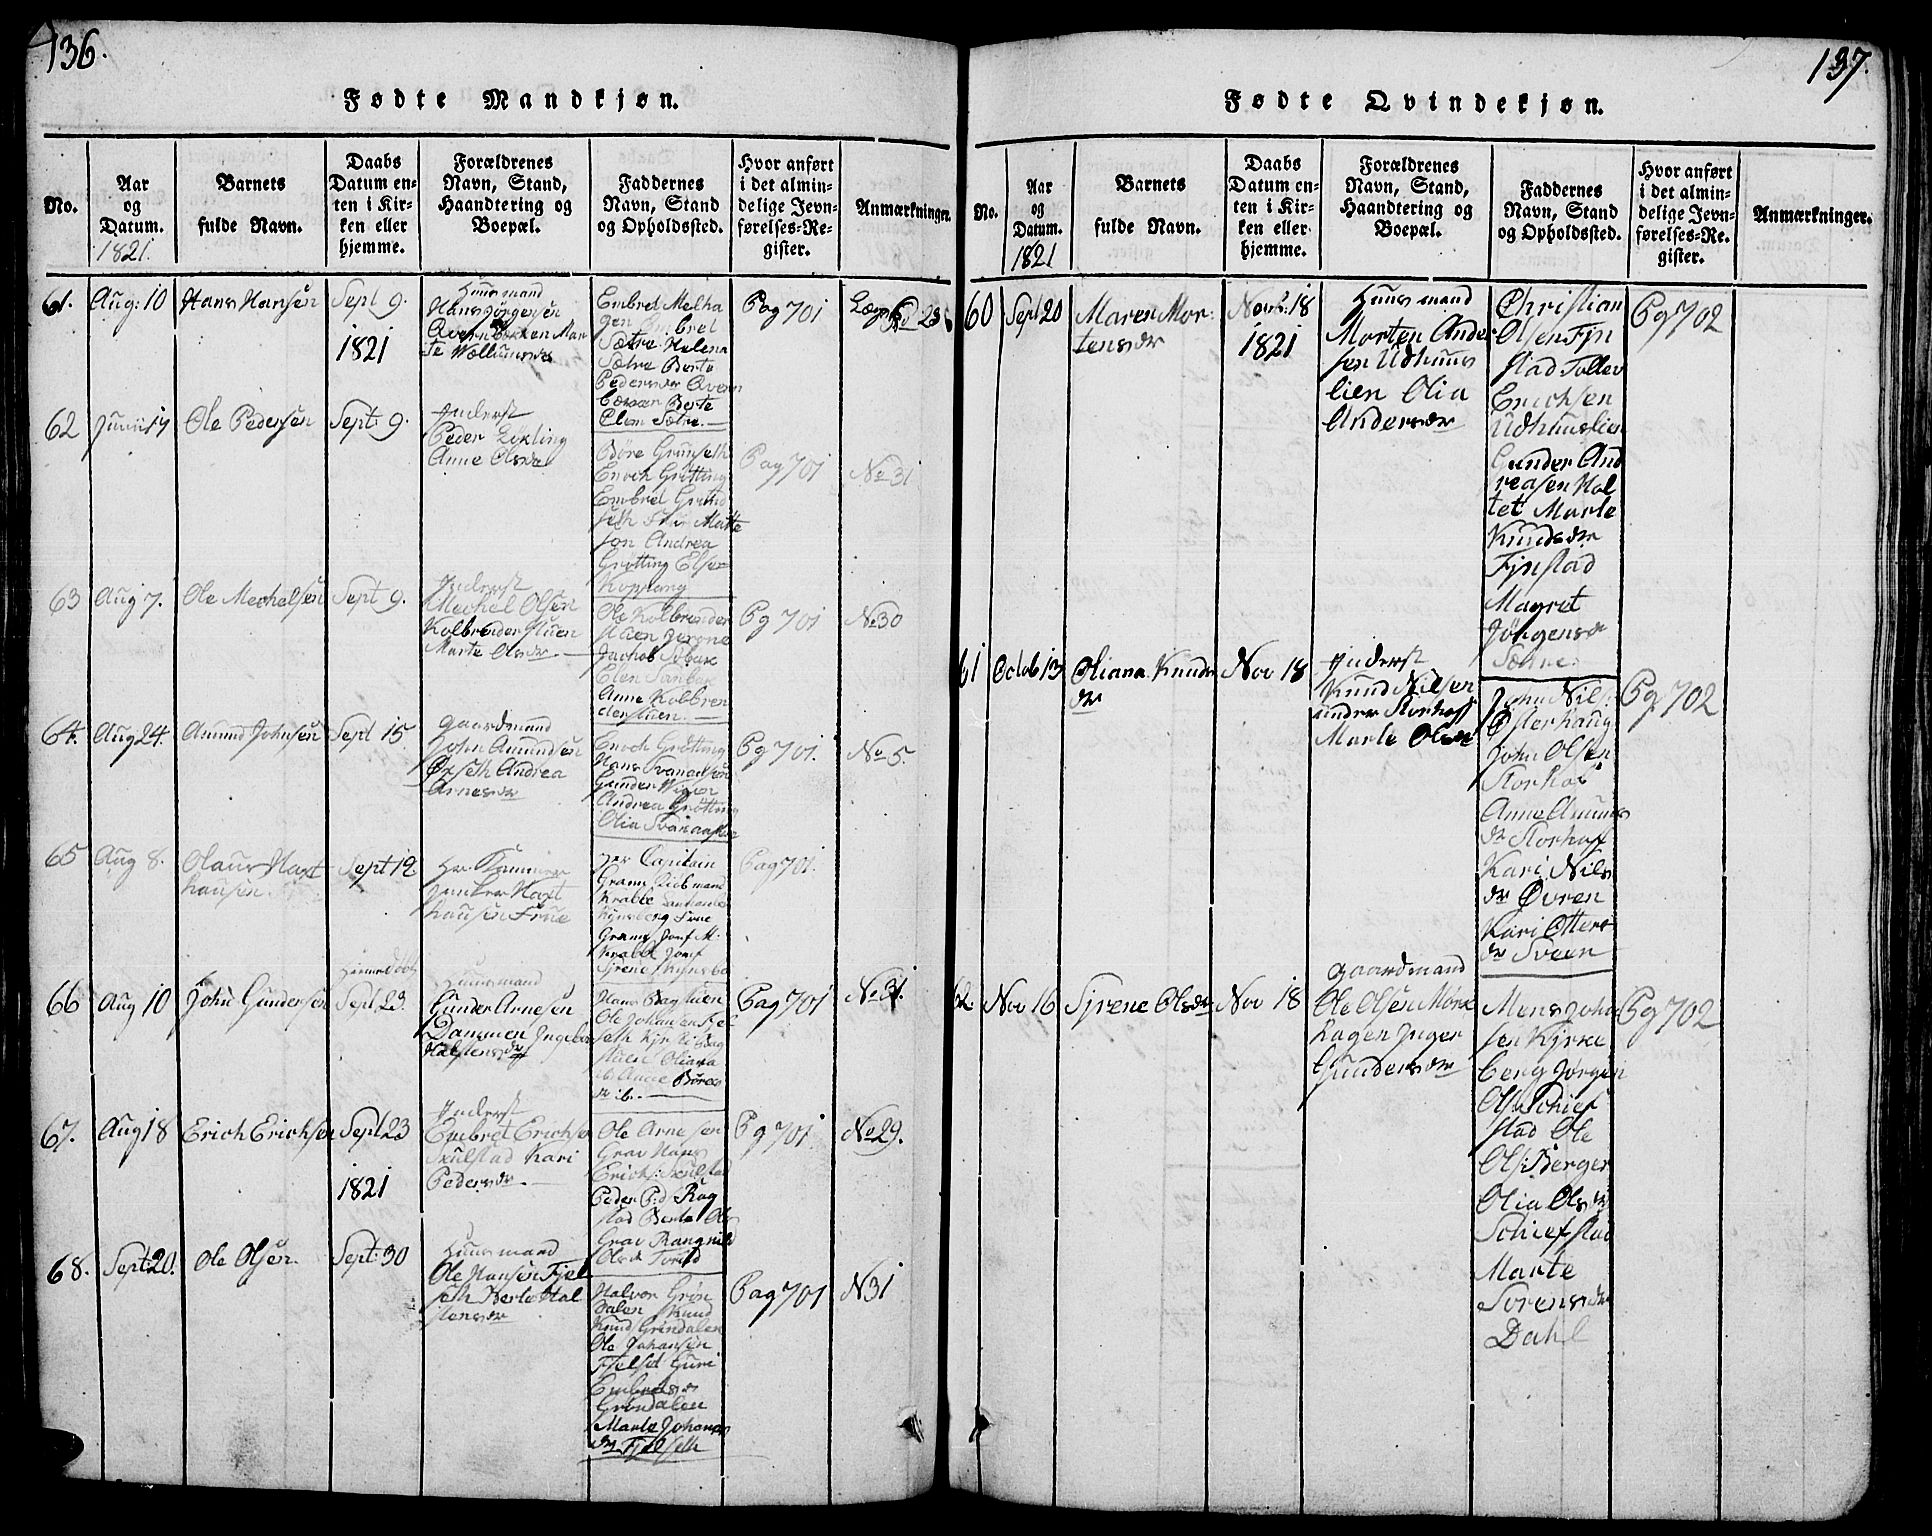 136.
Fødte Mandkjøn.
No.
Aar
og
Datum.
1821.
Barnets
fulde Navn.
Daabs
Datum en-
ten i Kir-
ken eller
hjemme.
Forældrenes
Navn, Stand,
Haandtering og
Boepæl.
Faddernes
Navn, Stand
og Opholdssted.
Hvor anført
i det almin-
delige Jevn-
førelses-Re-
gister.
Anmærkninger.
61.
Aug: 10
Hans Hansen
Sept 9.
1821
Huusmand
Hans Jørgensen
Mar-
te
Embret Melha
gen Embret
Sætre Helena
Sætre Berte
Pedersdr
Berte
Elen Sætre.
Pag 701
62
Junii 17
Ole Pedersen
Sept: 9.
Inderst
Peder Løkting
Anne Olsdr
Børe Grunseth
Enoch Grøtting
Embret Grund
seth
Andrea
Grøtting
Koppang
Pag 701
No 31
63
Aug 7.
Ole Mechelsen
Sept 9.
Inderst
Mechel Olsen
Kolbrenderstuen
Marte Olsdr.
Ole Kolbrender
stuen
Jachob
Elen
Anne Kolbren
derstuen.
Pg 701
No 30
64.
Aug 24.
Amund Johnsen
Sept 15.
gaardmand
John Amundsen
Ørseth Andrea
Arnesdr
Enoch Grøtting
Hans
Gunder
Andrea Grøtting
Olia
Pg 701.
No 5.
65
Aug 8.
Olaus Haxt
hausen.
Sept 12
Hr. Kammer
junker Haxt
hausen Frue
Hr Capitain
Gram
Krabbe
Frue
Gram Jomf M.
Krabbe Jomf
Sirene
Pag 701.
66
Aug 10
John Gundersen
Hiemedøbt
Sept 23.
Huusmand
Gunder Arnesen
Dammen Ingebor
Halstensdr
Hans Bagstuen
Ole Johansen Fjel
seth
stuen Oliana
ib. Anne Børes
dr ib.
Pag 701
No 31.
67.
Aug 18
Erich Erichsen
Sept 23
1821
Inderst
Embret Erichsen
Skulstad Kari
Pedersdr.
Ole Arnesen
Grav Hans
Erichs: Skulstad
Peder
stad Berte Ols
Grav Rangnild
Olsdr
Pg 701
No 29.
68.
Sept: 20.
Ole Olsen.
Sept: 30
Huusmand
Ole Hansen Fjel
seth Berte Hal
stensdr
Halvor Grøn
dalen Knud
Knud Grindalen
Ole Johansen
Fjelset Guri
Embretsdr
Grøndalen
Marte Johans
dr Fjelseth
Pag 701
N 31
137.
Fødte Qvindekjøn.
No.
Aar
og
Datum.
1821
Barnets
fulde Navn.
Daabs
Datum en-
ten i Kir-
ken eller
hjemme.
Forældrenes
Navn, Stand,
Haandtering og
Boepæl.
Faddernes
Navn, Stand
og Opholdssted.
Hvor anført
i det almin-
delige Jevn-
førelses-Re-
gister.
Anmærkninger.
60
Sept 20
Maren Mor-
tensdr
Novb. 18
1821
Huusmand
Morten Ander
sen Udhuus
lien Olia
Andersdr
Christian
Olsen Fjn
stad Tollev
Erichsen
Udhuuslien
Gunder And
reasen Hol
tet Marte
Knudsdr
Fjnstad
Magret
Jørgensdr
Sætre.
Pg 702
61
Octob 13
Oliana Knuds
dr
Nov 18
Inderst
Knud Nilsen
under Storhoff
Marte Olsdr
John Nils:
Østerhaug
John Olsen
Storhof
Anne Amunds
dr Storhoff
Kari Nils
dr Øvren
Kari Otters
dr Sveen
Pg 702
62.
Nov 16
Sirene Olsdr
Nov 18
gaardmand
Ole Olsen Mørk
hagen Inger
Gundersdr
Mens Johan
sen Kjrke
berg Jørgen
Ols: Schief
stad Ole
Ols: Berger
Olia Olsdr
Schiefstad
Marte
Sørensdr
Dahl
Pg 702